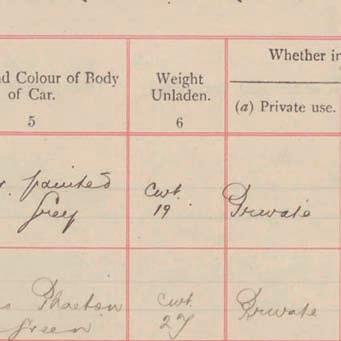 nd Colour of Body
of Car.
5
Weight
Unladen.
6
Whether in
(a) Private use.
painted
Grey
Cwt.
19
Private
Phaeton
Green
Cwt.
27
Private